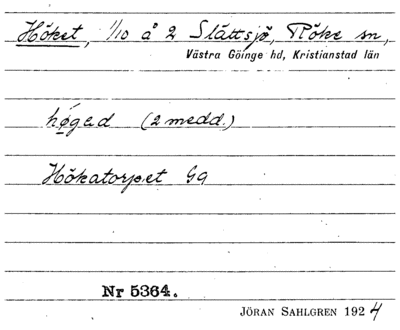 Höket, 1/10 å 2 Slättsjö, Röke sn,
Västra Göinge hd, Kristianstad län
hø̀gad (2 medd.)
Hökatorpet Gg
Nr 5364.
JÖRAN SAHLGREN 1924